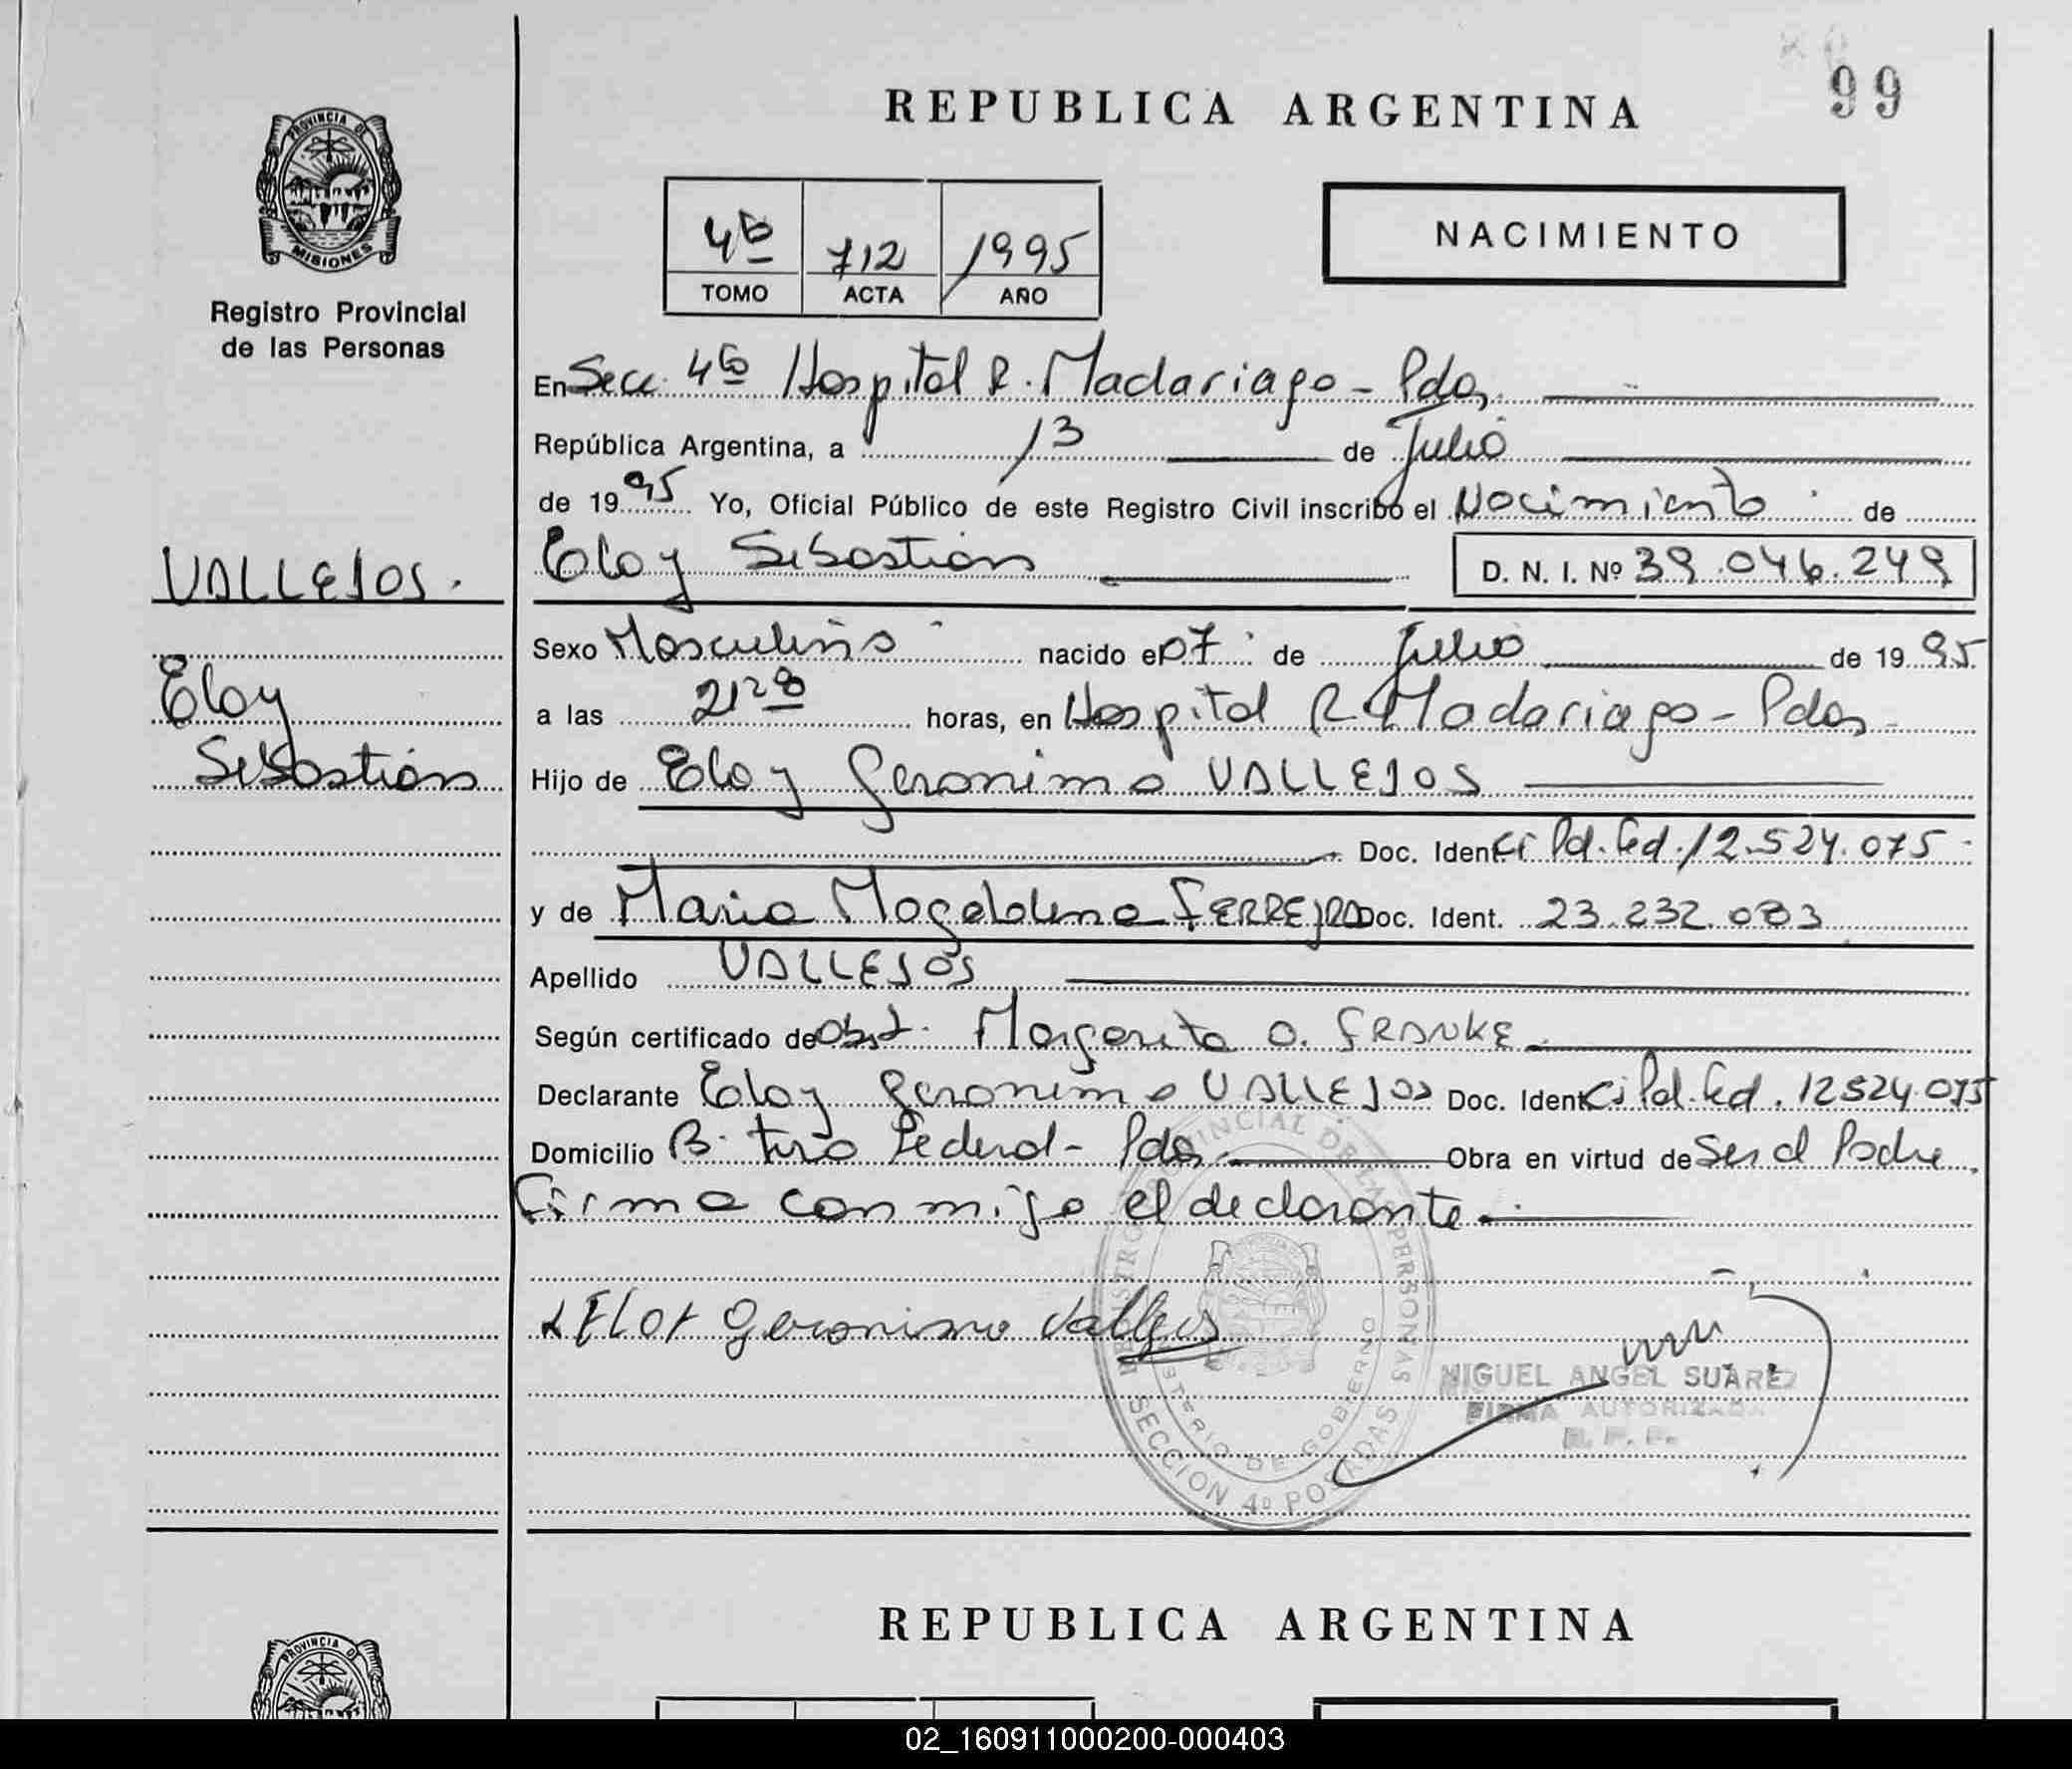 99
REPUBLICA ARGENTINA
PROVINCIA DE
MISIONES
Registro Provincial
de las Personas
4ta 712 1995
TOMO ACTA AÑO
NACIMIENTO
En Secc. 4ta Hospital R. Madariaga - Pdas.
República Argentina, a 13 de Julio
de 1995 Yo, Oficial Público de este Registro Civil inscribo el Nacimiento de
VALLEJOS.
Eloy Sebastián D. N. I. Nº 39.046.249
Sexo Masculino nacido el 07 de Julio de 1995
Eloy
a las 21 28 horas, en Hospital R. Madariaga - Pdas
Sebastián
Hijo de Eloy Geronimo VALLEJOS
Doc. Ident. Ci Pol. Fed. 12.524.075
y de Maria Magdalena FERREJRA Doc. Ident. 23.232.083
Apellido VALLEJOS
Según certificado de Obst. Margarita O. FRANKE
Declarante Eloy Geronimo VALLEJOS Doc. Ident. Ci Pol. Fed. 12524.075
Domicilio B. Tiro Federal - Pdas Obra en virtud de Ser el Padre.
Firma conmigo el declarante.
ELOY Geronimo Vallejos
REGISTRO PROVINCIAL DE LAS PERSONAS
MINISTERIO DE GOBIERNO
SECCION 4º POSADAS
MIGUEL ANGEL SUAREZ
FIRMA AUTORIZADA
R. P. P.
REPUBLICA ARGENTINA
PROVINCIA DE
02_160911000200-000403